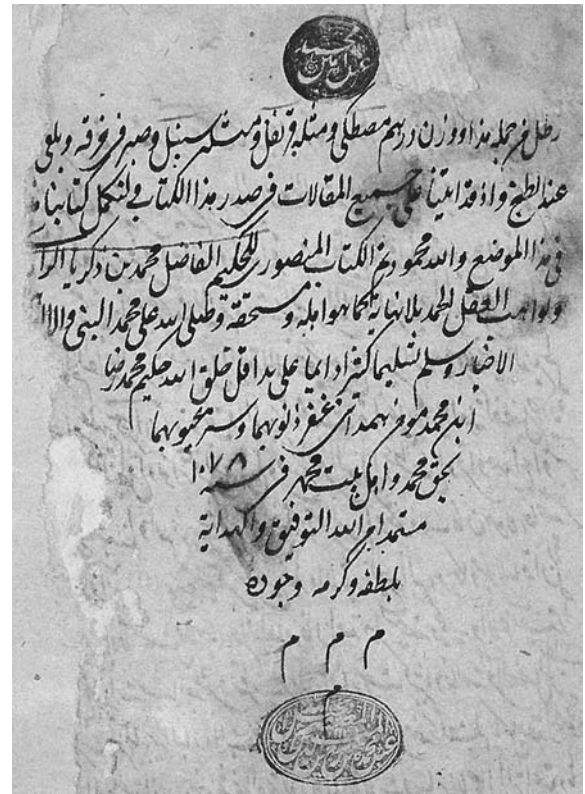 رطل من جمله هذا و وزن درهم مصطكى ومثله قرنفل ومثله سنبل وصبر فى خرقه ويلقى
عند الطبخ واذ قد اتينا على جميع المقالات فى صدر هذا الكتاب فلنكمل كتابنا
فى هذا الموضع والله محمود تم الكتاب المنصورى للحكيم الفاضل محمد بن زكريا
ولواهب العقل الحمد بلا نهاية كما هو اهله ومستحقه وصلى الله على محمد النبى
الاخيار وسلم تسليما كثيرا دايما على يد اقل خلق الله حكيم محمد رضا
ابن محمد مومن همدانى غفر ذنوبهما وستر عيوبهما
بحق محمد واهل بيت محمد فى سنه ١٠٧٨
مستمد ام الله التوفيق والهداية
بلطفه وكرمه وجوده
م م م